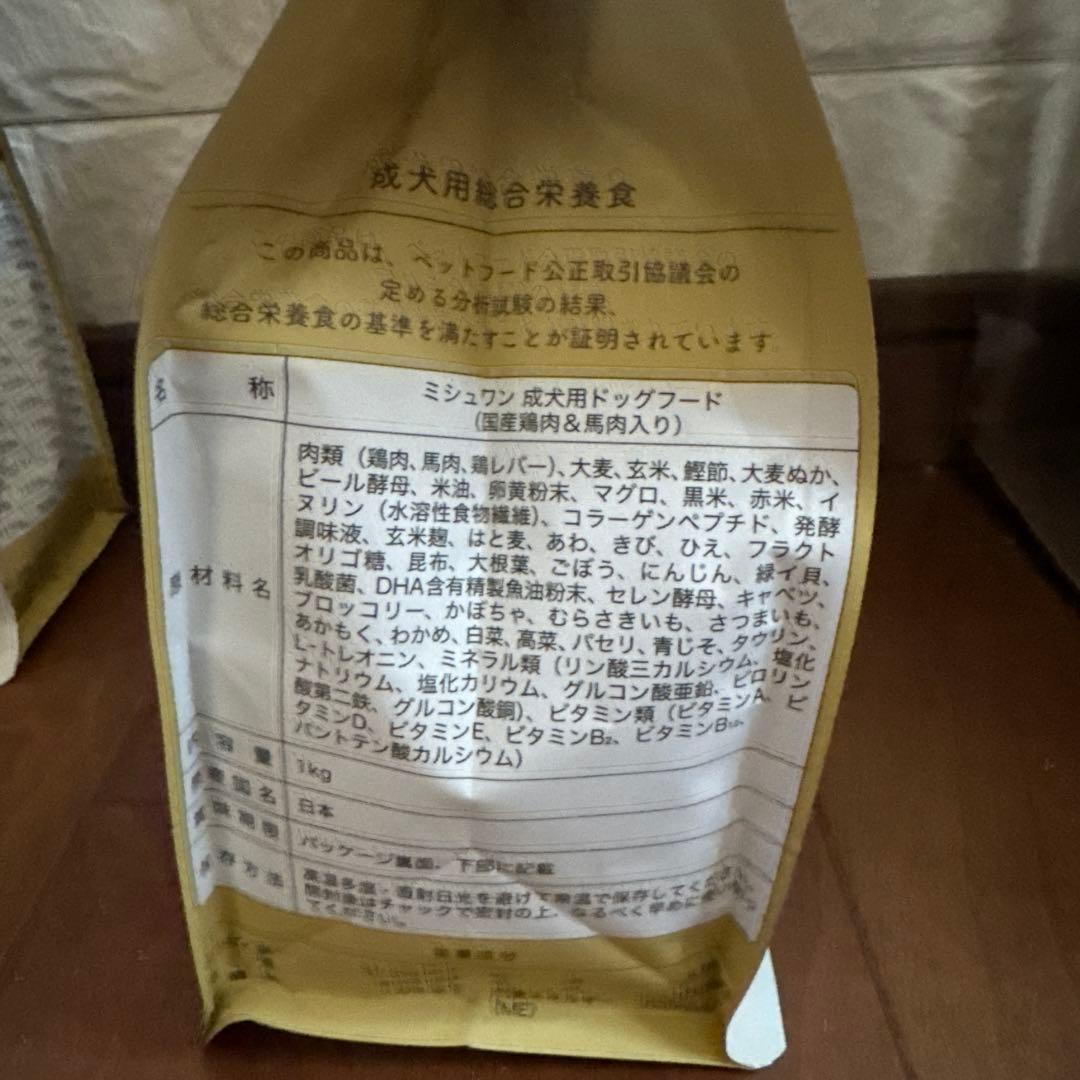 成犬用総合栄養食
この商品は、ペットフード公正取引協議会の
定める分析試験の結果、
総合栄養食の基準を満たすことが証明されています。
名 称
ミシュワン 成犬用ドッグフード
(国産鶏肉&馬肉入り)
材料名
肉類（鶏肉、馬肉、鶏レバー）、大麦、玄米、鰹節、大麦ぬか、
ビール酵母、米油、卵黄粉末、マグロ、黒米、赤米、イ
ヌリン（水溶性食物繊維）、コラーゲンペプチド、発酵
調味液、玄米麹、はと麦、あわ、きび、ひえ、フラクト
オリゴ糖、昆布、大根葉、ごぼう、にんじん、緑イ貝、
乳酸菌、DHA含有精製魚油粉末、セレン酵母、キャベツ、
ブロッコリー、かぼちゃ、むらさきいも、さつまいも、
あかもく、わかめ、白菜、高菜、パセリ、青じそ、タウリン、
L-トレオニン、ミネラル類（リン酸三カルシウム、塩化
ナトリウム、塩化カリウム、グルコン酸亜鉛、ピロリン
酸第二鉄、グルコン酸銅）、ビタミン類（ビタミンA、ビ
タミンD、ビタミンE、ビタミンB₂、ビタミンB₁₂、
パントテン酸カルシウム）
容量
1kg
原産国名
日本
賞味期限
パッケージ裏面、下部に記載
保存方法
高温多湿・直射日光を避けて常温で保存してください。
開封後はチャックで密封の上、なるべく早めに
てください。